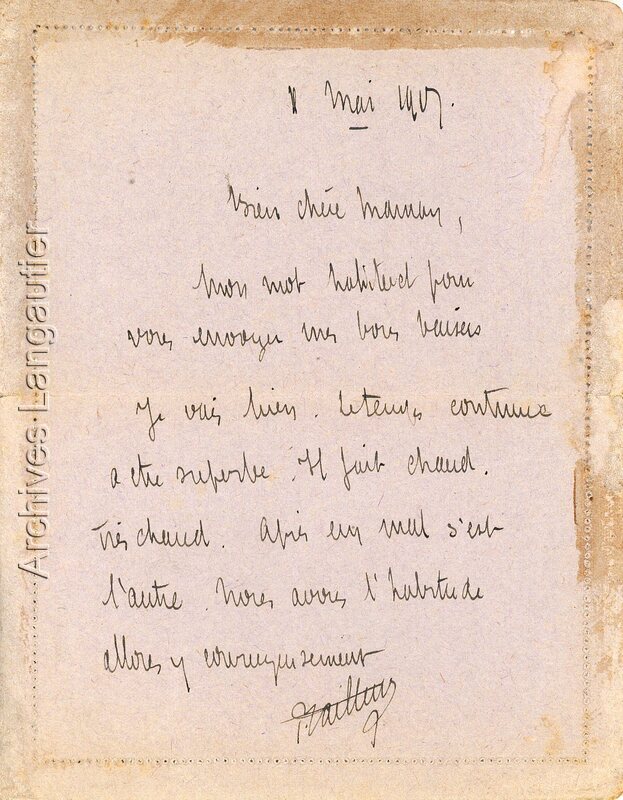 Mai 1917.
Bien chère Maman,
Mon mot habituel pour
vous envoyer mes bons baisers
Je vais bien. Le temps continue
a etre superbe. Il fait chaud.
très chaud. Après un mal s'est
l'autre. Nous avons l'habitude
allons y courageusement
Archives Langautier